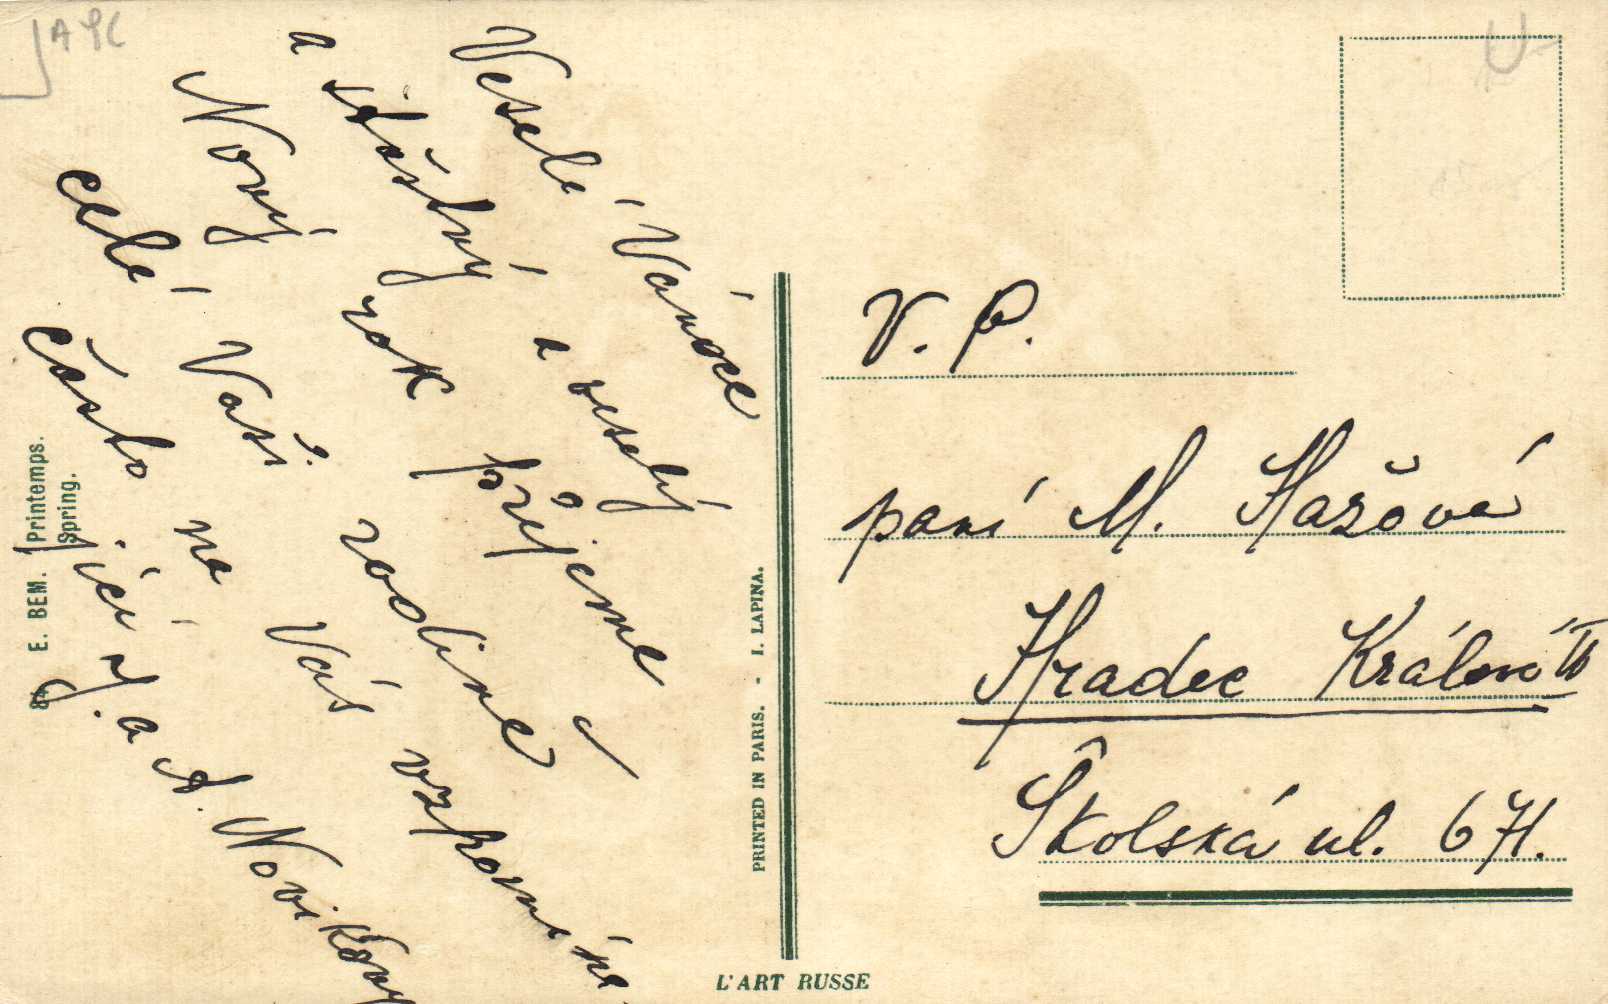 Veselé Vánoce
a šťastný a veselý
Nový rok přejeme
celé Vaší rodině
často na Vás vzpomína
jící M. a A. Novikovy
V. P.
paní M. Hažová
Hradec Králové II
Školská ul. 671.
84 E. BEM. Printemps.
Spring.
PRINTED IN PARIS. - I. LAPINA.
L'ART RUSSE